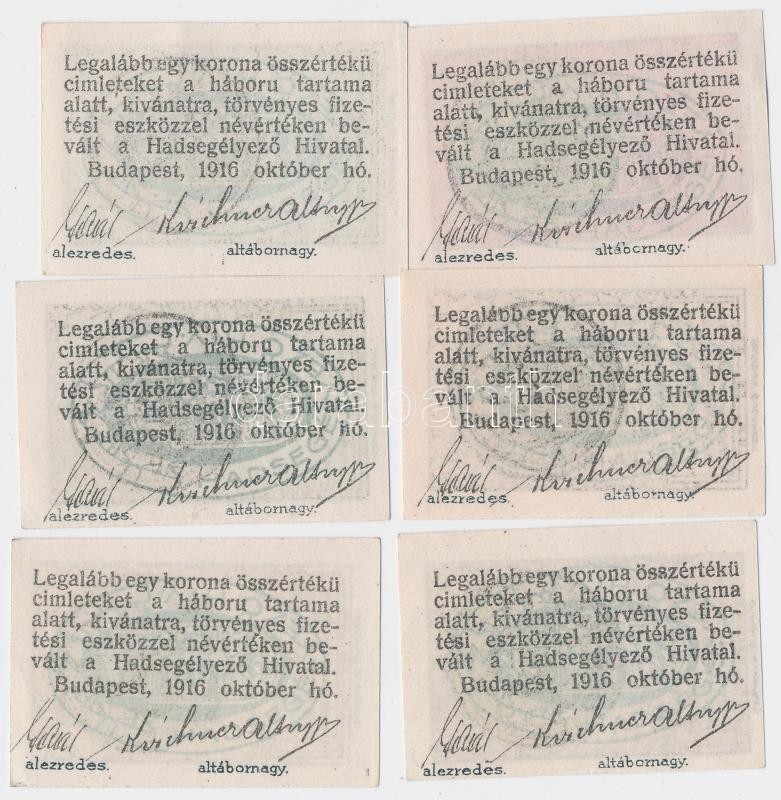 Legalább egy korona összértékü
cimleteket a háboru tartama
alatt, kivánatra, törvényes fize-
tési eszközzel névértéken be-
vált a Hadsegélyező Hivatal.
Budapest, 1916 október hó.
alezredes. altábornagy.
Legalább egy korona összértékü
cimleteket a háboru tartama
alatt, kivánatra, törvényes fize-
tési eszközzel névértéken be-
vált a Hadsegélyező Hivatal.
Budapest, 1916 október hó.
alezredes. altábornagy.
Legalább egy korona összértékü
cimleteket a háboru tartama
alatt, kivánatra, törvényes fize-
tési eszközzel névértéken be-
vált a Hadsegélyező Hivatal.
Budapest, 1916 október hó.
alezredes. altábornagy.
Legalább egy korona összértékü
cimleteket a háboru tartama
alatt, kivánatra, törvényes fize-
tési eszközzel névértéken be-
vált a Hadsegélyező Hivatal.
Budapest, 1916 október hó.
alezredes. altábornagy.
darabanth
Legalább egy korona összértékü
cimleteket a háboru tartama
alatt, kivánatra, törvényes fize-
tési eszközzel névértéken be-
vált a Hadsegélyező Hivatal.
Budapest, 1916 október hó.
alezredes. altábornagy.
Legalább egy korona összértékü
cimleteket a háboru tartama
alatt, kivánatra, törvényes fize-
tési eszközzel névértéken be-
vált a Hadsegélyező Hivatal.
Budapest, 1916 október hó.
alezredes. altábornagy.